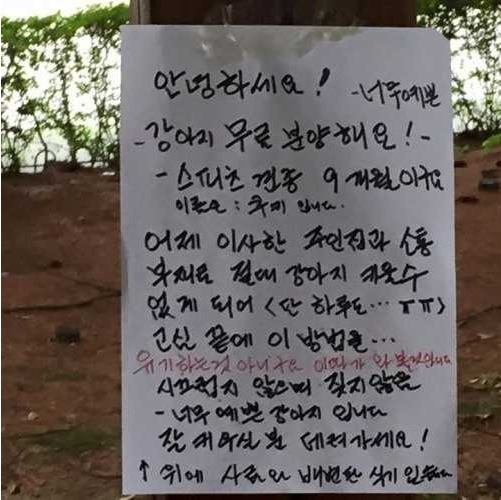 안녕하세요!
-너무예쁜
-강아지 무료 분양해요!-
- 스피츠 견종 9개월이구요
이름은 : 추피 입니다.
어제 이사한 주인집과 소통
부재로 절대 강아지 키울수
없게 되어 <단 하루도… ㅠㅠ>
고심 끝에 이 방법을…
유기하는것 아니구요 이따가 와 볼것입니다
시끄럽지 않으며 짖지않는
- 너무 예쁜 강아지 입니다
잘 키우실 분 데려가세요!
↑ 위에 사료와 배변판 식기 있습니다